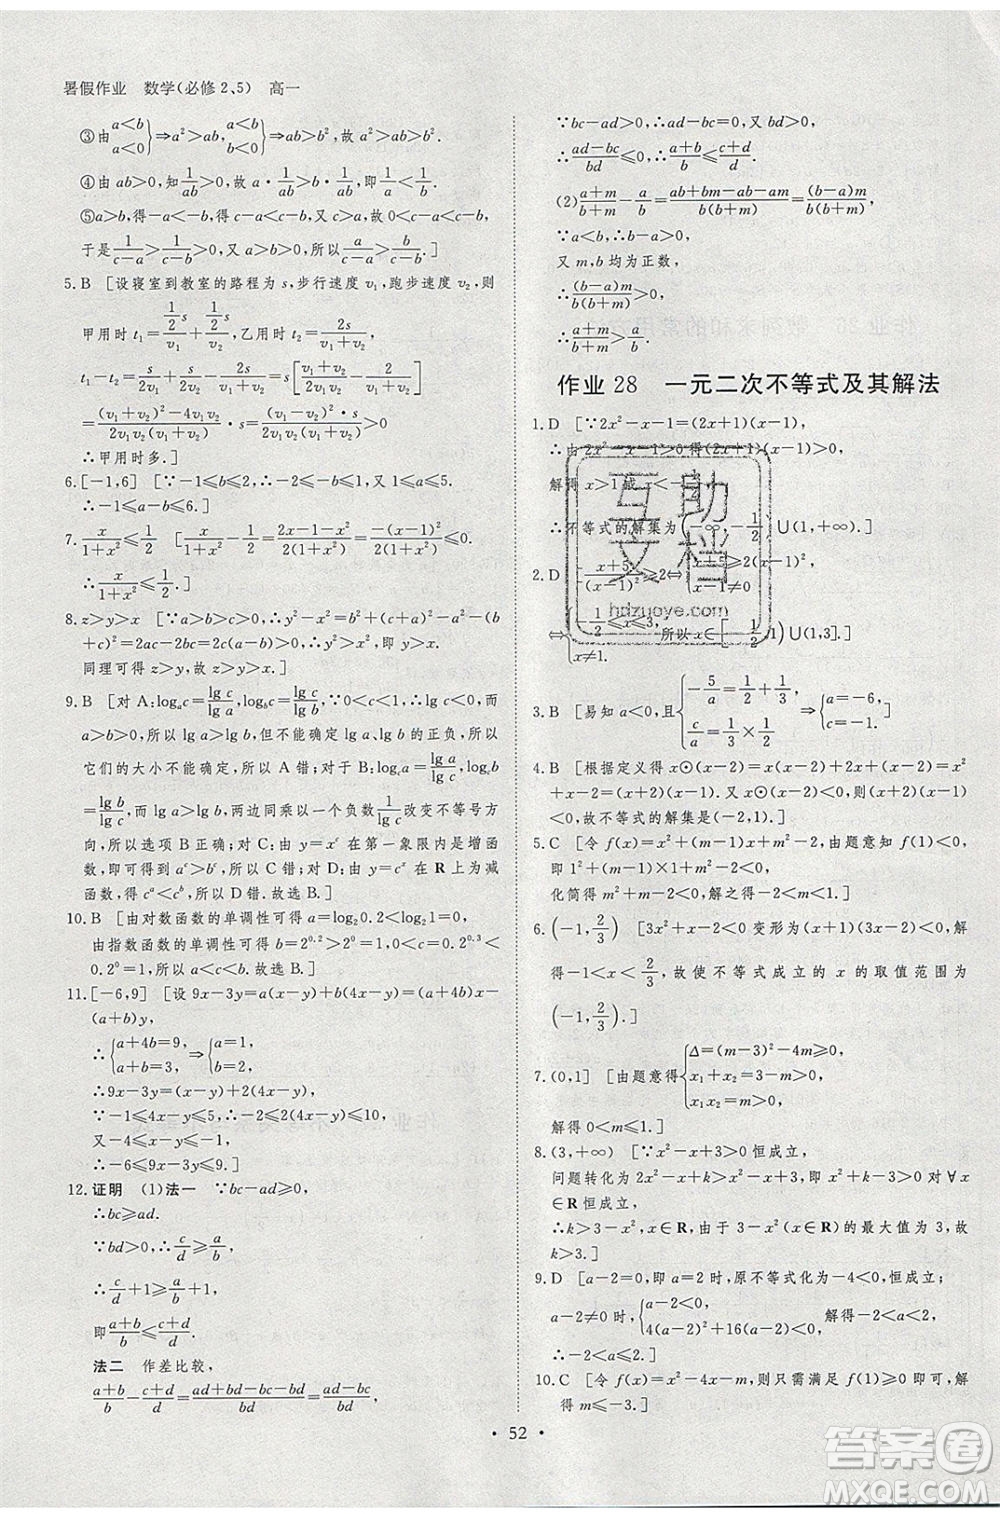 暑假作业　数学(必修2、5)　高一
③由{a<b, a<0}⇒a²>ab,{a<b, b<0}⇒ab>b²,故a²>ab>b².
④由ab>0,知1/ab>0,故a·1/ab>b·1/ab,即1/a<1/b.
⑤a>b,得-a<-b,得c-a<c-b,又c>a,故0<c-a<c-b,
于是1/(c-a)>1/(c-b)>0,又a>b>0,所以a/(c-a)>b/(c-b).]
5.B　[设寝室到教室的路程为s,步行速度v₁,跑步速度v₂,则
甲用时t₁=(1/2 s)/v₁+(1/2 s)/v₂,乙用时t₂=2s/(v₁+v₂),
t₁-t₂=s/2v₁+s/2v₂-2s/(v₁+v₂)=s[(v₁+v₂)/2v₁v₂-2/(v₁+v₂)]
=((v₁+v₂)²-4v₁v₂)/(2v₁v₂(v₁+v₂))·s=(v₁-v₂)²/(2v₁v₂(v₁+v₂))·s>0.
∴甲用时多.]
6.[-1,6]　[∵-1≤b≤2,∴-2≤-b≤1.又1≤a≤5.
∴-1≤a-b≤6.]
7.x/(1+x²)≤1/2　[x/(1+x²)-1/2=(2x-1-x²)/(2(1+x²))=-(x-1)²/(2(1+x²))≤0.
∴x/(1+x²)≤1/2.]
8.z>y>x　[∵y²-x²=2c(a-b)>0,∴y>x.
同理可得z>y,故z>y>x.]
9.B　[对A:logₐc=lg c/lg a,log_b c=lg c/lg b,∵0<c<1,∴lg c<0,而
a>b>0,所以lg a>lg b,但不能确定lg a、lg b的正负,所以
它们的大小不能确定,所以A错;对B:log_c a=lg a/lg c,log_c b
=lg b/lg c,而lg a>lg b,两边同乘以一个负数1/lg c改变不等号方
向,所以选项B正确;对C:由y=xᶜ在第一象限内是增函
数,即可得到aᶜ>bᶜ,所以C错;对D:由y=cˣ在R上为减
函数,得cᵃ<cᵇ,所以D错.故选B.]
10.B　[由对数函数的单调性可得a=log₂0.2<log₂1=0,
由指数函数的单调性可得b=2^0.2>2⁰=1,0<c=0.2^0.3<
0.2⁰=1,所以a<c<b.故选B.]
11.[-6,9]　[设9x-3y=a(x+y)+b(4x-y)=(a+4b)x-
(-a+b)y,
∴{a+4b=9, -a+b=3}⇒{a=-1, b=2.}
∴9x-3y=-(x+y)+2(4x-y),
∵-1≤4x-y≤5,∴-2≤2(4x-y)≤10,
又-4≤-(x+y)≤-1,
∴-6≤9x-3y≤9.]
12.证明　(1)法一　∵bc-ad≥0,
∴bc≥ad.
∵bd>0,∴c/d≥a/b,
∴c/d+1≥a/b+1,
即(a+b)/b≤(c+d)/d.
法二　作差比较,
(a+b)/b-(c+d)/d=(ad+bd-bc-bd)/bd=(ad-bc)/bd,
∵bc-ad≥0,∴ad-bc≤0,又bd>0,
∴(ad-bc)/bd≤0,∴(a+b)/b≤(c+d)/d.
(2)(a+m)/(b+m)-a/b=(ab+bm-ab-am)/(b(b+m))=(b-a)m/(b(b+m)),
∵a<b,∴b-a>0,
又m,b均为正数,
∴(b-a)m/(b(b+m))>0,
∴(a+m)/(b+m)>a/b.
作业28　一元二次不等式及其解法
1.D　[∵2x²-x-1=(2x+1)(x-1),
∴由2x²-x-1>0得(2x+1)(x-1)>0,
解得x>1或x<-1/2,
∴不等式的解集为(-∞,-1/2)∪(1,+∞).]
2.D　[(x+5)/(x-1)²≥2⇔{x+5≥2(x-1)², x-1≠0}
⇔{-1/2≤x≤3, x≠1.}所以x∈[-1/2,1)∪(1,3].]
3.B　[易知a<0,{-5/a=1/2+1/3, c/a=1/3×1/2}⇒{a=-6, c=-1.}]
4.B　[根据定义得x⊙(x-2)=x(x-2)+2x+(x-2)=x²
+x-2<0,解得-2<x<1,故不等式的解集是(-2,1).]
5.C　[令f(x)=x²+(m-1)x+m²-2,由题意知f(1)<0,
即1²+(m-1)×1+m²-2<0,
化简得m²+m-2<0,解之得-2<m<1.]
6.(-1,2/3)　[3x²+x-2<0变形为(x+1)(3x-2)<0,解
得-1<x<2/3,故使不等式成立的x的取值范围为
(-1,2/3).]
7.(0,1]　[由题意得{Δ=(m-3)²-4m≥0, x₁+x₂=3-m>0, x₁x₂=m>0,}
解得0<m≤1.]
8.(3,+∞)　[∵x²-x+k>3-x恒成立,
问题转化为x²-x+k>-x+3,即k>3-x²,对∀x
∈R恒成立,
∴k>3-x²,x∈R,由于3-x²(x∈R)的最大值为3,故
k>3.]
9.D　[a-2=0,即a=2时,原不等式化为-4<0,恒成立;
a-2≠0时,{a-2<0, 4(a-2)²+16(a-2)<0,}解得-2<a<2,
∴-2<a≤2.]
10.C　[令f(x)=x²-4x-m,则只需满足f(1)≥0即可,
解得m≤-3.]
• 52 •
互助
文档
hdzuoye.com
答案圈
MXQE.COM